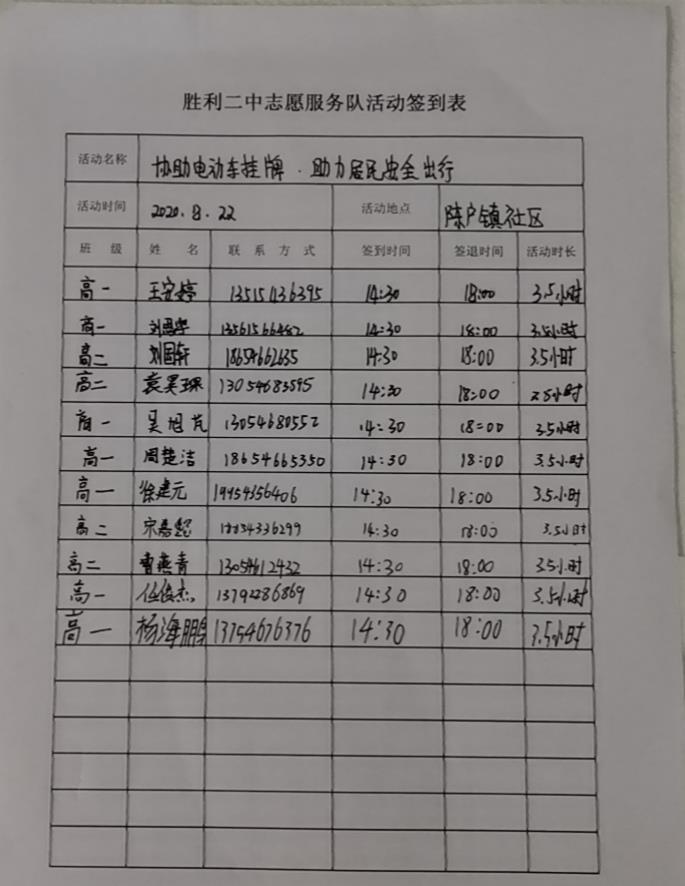 胜利二中志愿服务队活动签到表
活动名称 协助电动车挂牌．助力居民安全出行
活动时间 2020.8.22 活动地点 陈户镇社区
班 级 姓 名 联 系 方 式 签到时间 签退时间 活动时长
高一 王安婷 14:30 18:00 3.5小时
高一 14:30 18:00 3.5小时
高二 刘国轩 18654662635 14:30 18:00 3.5小时
高二 袁昊琛 14:30 18:00 3.5小时
高一 吴旭芃 13054680552 14:30 18:00 3.5小时
高一 周楚洁 18654665350 14:30 18:00 3.5小时
高一 徐建元 14:30 18:00 3.5小时
高二 14:30 18:00 3.5小时
高二 曹燕青 13054612432 14:30 18:00 3.5小时
高一 伍俊杰 13792286869 14:30 18:00 3.5小时
高一 杨海鹏 13754676376 14:30 18:00 3.5小时